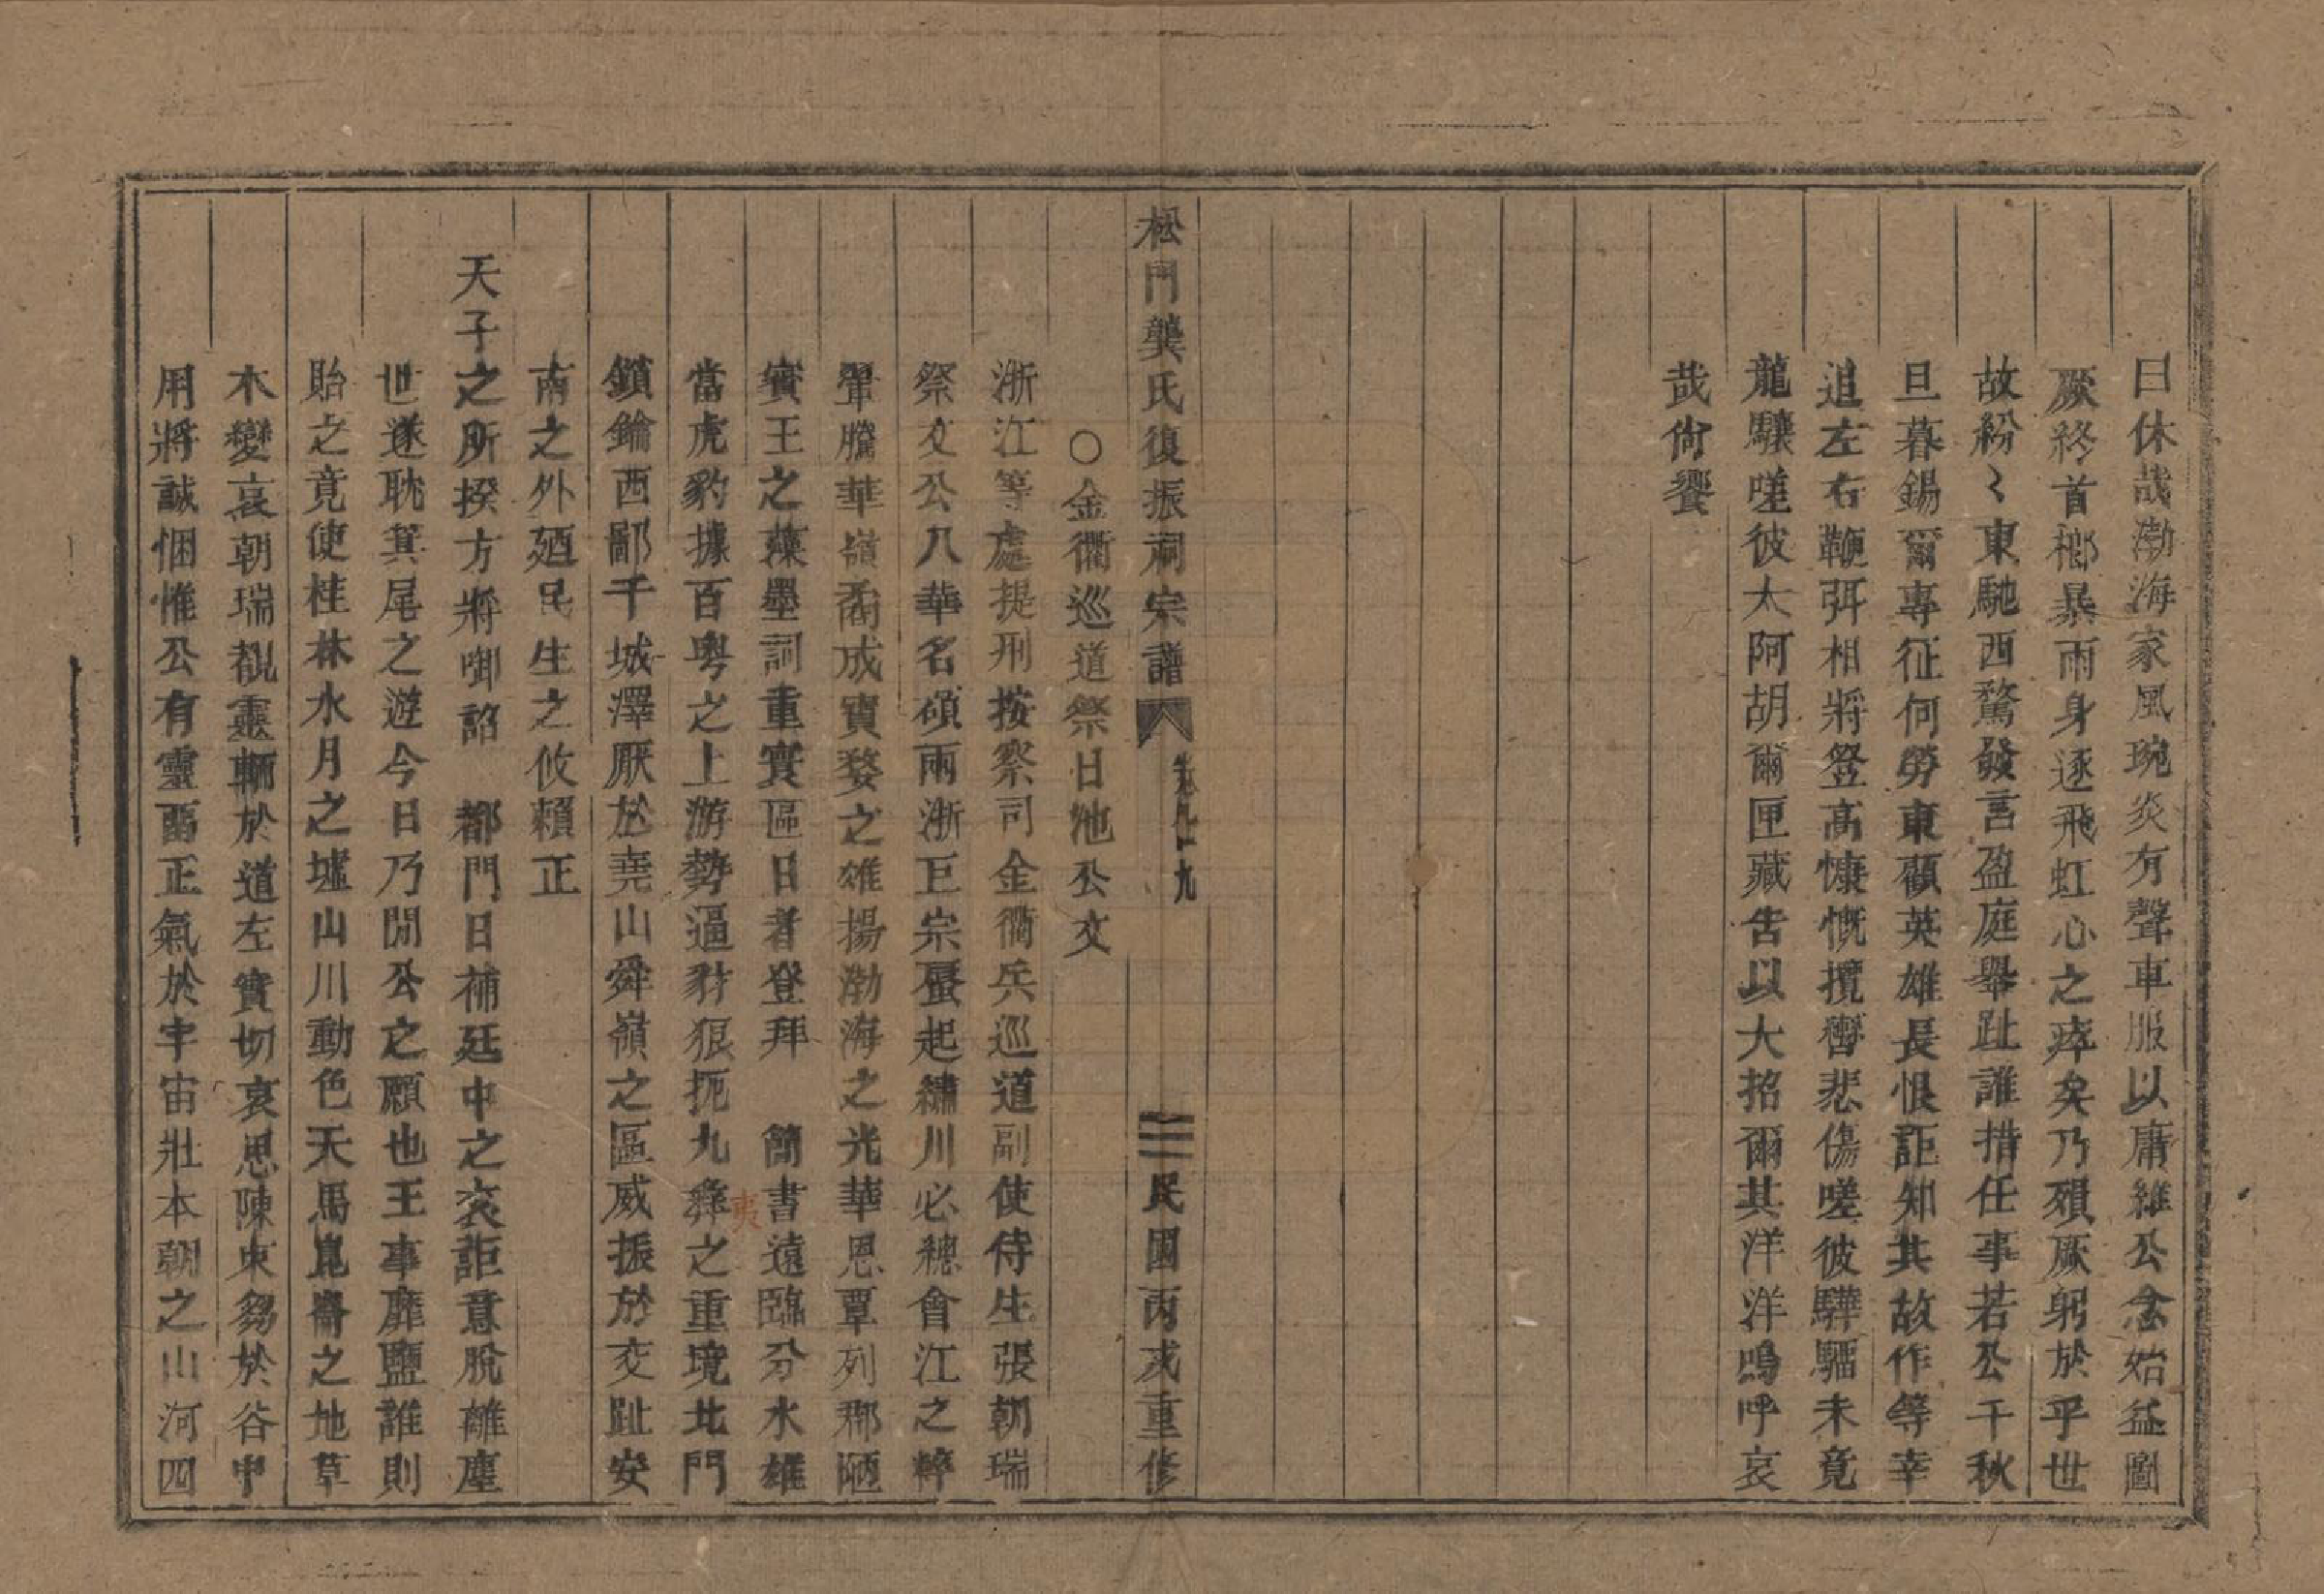 曰休哉渤海家風琬炎有聲車服以庸維公念始益圖
厥終首櫛暴雨身逐飛虹心之瘁矣乃殞厥躬於乎世
故紛〻東馳西騖發言盈庭舉趾誰措任事若公千秋
旦暮錫爾專征何勞東顧英雄長恨詎知其故作等幸
追左右鞭弭相將登高慷慨攬轡悲傷嗟彼驊騮未竟
龍驤嗟彼太阿胡爾匣藏告以大招爾其洋洋嗚呼哀
哉尙饗
松門龔氏復振祠宗譜 卷九 九 民國丙戌重修
○金衢巡道祭日池公文
浙江等處提刑按察司金衢兵巡道副使侍生張朝瑞
祭文公八華名碩兩浙巨宗蜃起繡川必總會江之粹
翬騰華嶺喬成寶婺之雄揚渤海之光華恩覃列郡陋
賓王之藻墨詞重寰區日者登拜 簡書遠臨分水雄
當虎豹據百粤之上游勢逼豺狼扼九彝之重境北門
夷
鎖鑰西鄙千城澤厭於堯山舜嶺之區威振於交趾安
南之外廼民生之攸賴正
天子之所揆方將啣詔 都門日補廷中之袞詎意脫離塵
世遂耽箕尾之遊今日乃閒公之願也王事靡盬誰則
貽之竟使桂林水月之墟山川動色天馬崑崙之地草
木變哀朝瑞覩靈輛於道左實切哀思陳束芻於谷中
用將誠悃惟公有靈畱正氣於宇宙壯本朝之山河四